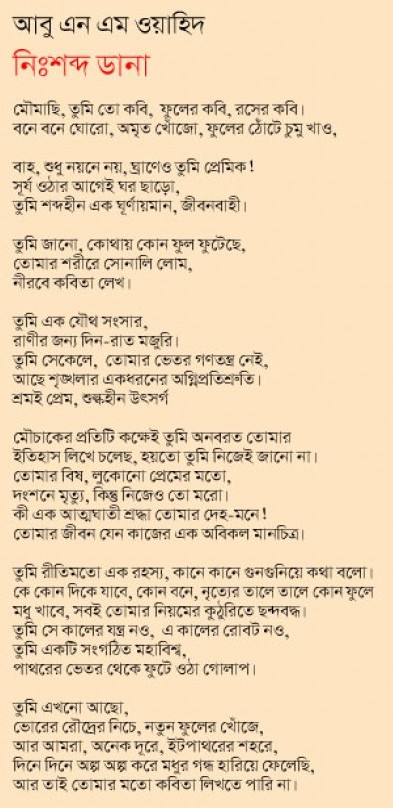 আবু এন এম ওয়াহিদ
নিঃশব্দ ডানা
মৌমাছি, তুমি তো কবি, ফুলের কবি, রসের কবি।
বনে বনে ঘোরো, অমৃত খোঁজো, ফুলের ঠোঁটে চুমু খাও,
বাহ, শুধু নয়নে নয়, ঘ্রাণেও তুমি প্রেমিক!
সূর্য ওঠার আগেই ঘর ছাড়ো,
তুমি শব্দহীন এক ঘূর্ণায়মান, জীবনবাহী।
তুমি জানো, কোথায় কোন ফুল ফুটেছে,
তোমার শরীরে সোনালি লোম,
নীরবে কবিতা লেখ।
তুমি এক যৌথ সংসার,
রাণীর জন্য দিন-রাত মজুরি।
তুমি সেকেলে, তোমার ভেতর গণতন্ত্র নেই,
আছে শৃঙ্খলার একধরনের অগ্নিপ্রতিশ্রুতি।
শ্রমই প্রেম, শুল্কহীন উৎসর্গ
মৌচাকের প্রতিটি কক্ষেই তুমি অনবরত তোমার
ইতিহাস লিখে চলেছ, হয়তো তুমি নিজেই জানো না।
তোমার বিষ, লুকোনো প্রেমের মতো,
দংশনে মৃত্যু, কিন্তু নিজেও তো মরো।
কী এক আত্মঘাতী শ্রদ্ধা তোমার দেহ-মনে!
তোমার জীবন যেন কাজের এক অবিকল মানচিত্র।
তুমি রীতিমতো এক রহস্য, কানে কানে গুনগুনিয়ে কথা বলো।
কে কোন দিকে যাবে, কোন বনে, নৃত্যের তালে তালে কোন ফুলে
মধু খাবে, সবই তোমার নিয়মের কুঠুরিতে ছন্দবদ্ধ।
তুমি সে কালের যন্ত্র নও, এ কালের রোবট নও,
তুমি একটি সংগঠিত মহাবিশ্ব,
পাথরের ভেতর থেকে ফুটে ওঠা গোলাপ।
তুমি এখনো আছো,
ভোরের রৌদ্রের নিচে, নতুন ফুলের খোঁজে,
আর আমরা, অনেক দূরে, ইটপাথরের শহরে,
দিনে দিনে অল্প অল্প করে মধুর গন্ধ হারিয়ে ফেলেছি,
আর তাই তোমার মতো কবিতা লিখতে পারি না।